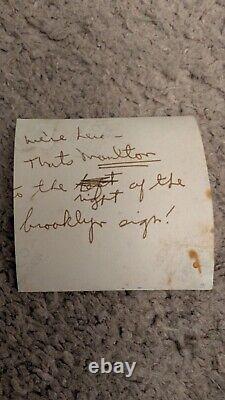 We're here –
Thats Moulton
to the right of the
brooklyn sign!
ebay